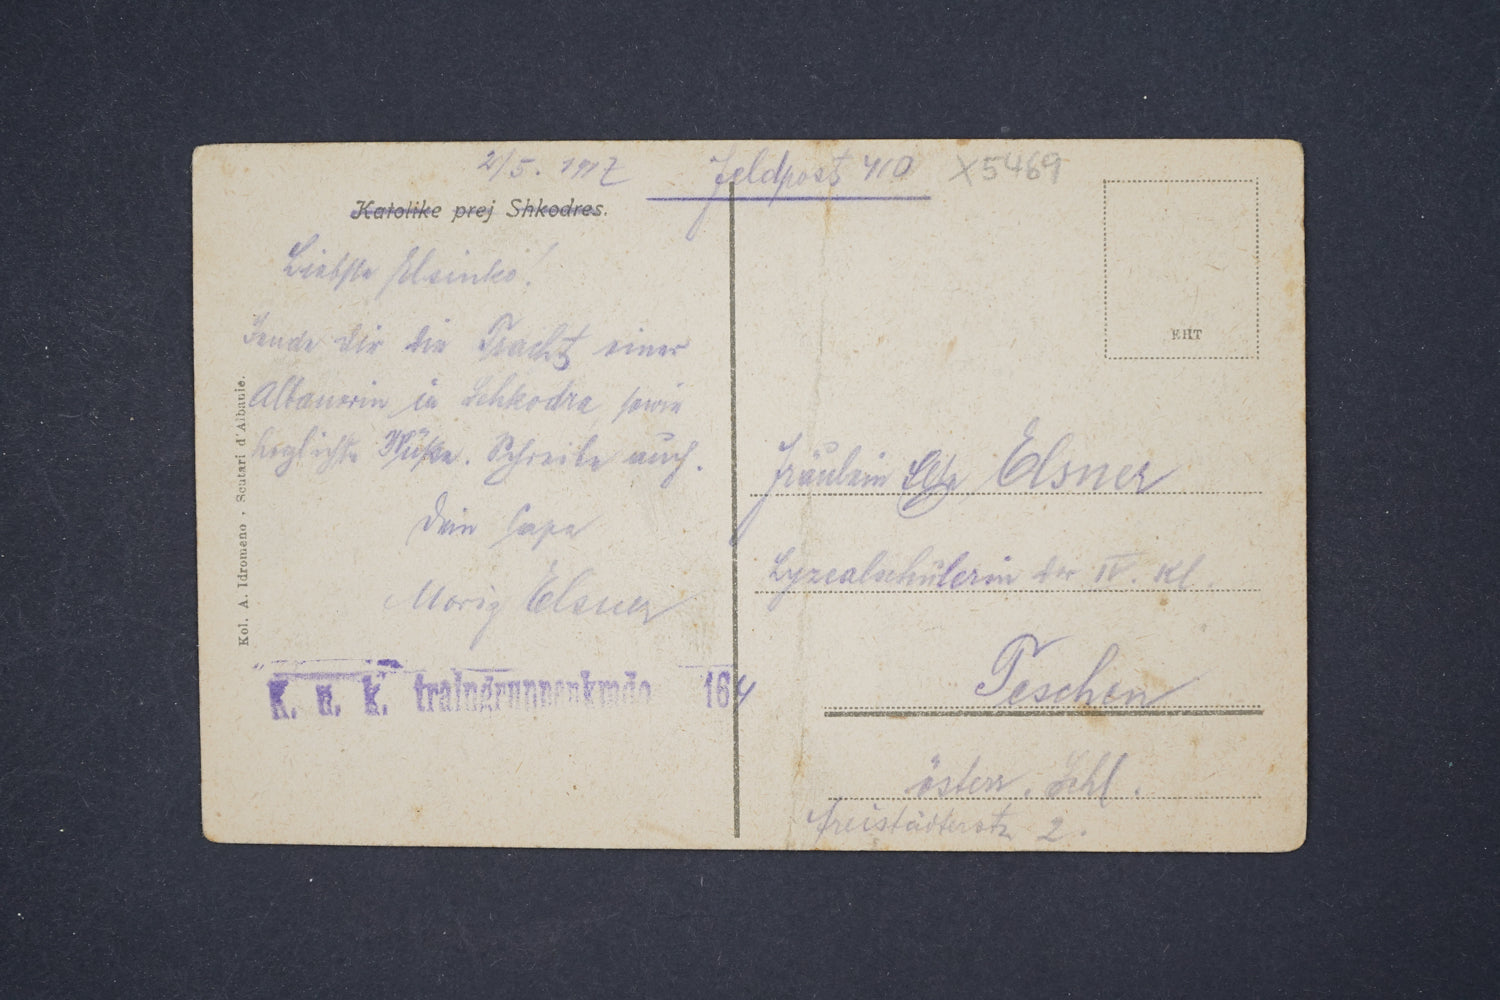 2/5. 1917
Feldpost 410
X5469
Katolike prej Shkodres.
Liebste Elsinko!
Sende Dir die Tracht einer
Albanerin in Schkodra sowie
herzlichste Küße. Schreibe auch.
Dein Papa
Moriz Elsner
K. u. k. traingruppenkmdo 164
Kol. A. Idromeno - Scutari d'Albanie.
EHT
Fräulein Elsner
Lyzealschülerin der IV. Kl.
Teschen
österr. Schl.
Freistädterstr. 2.